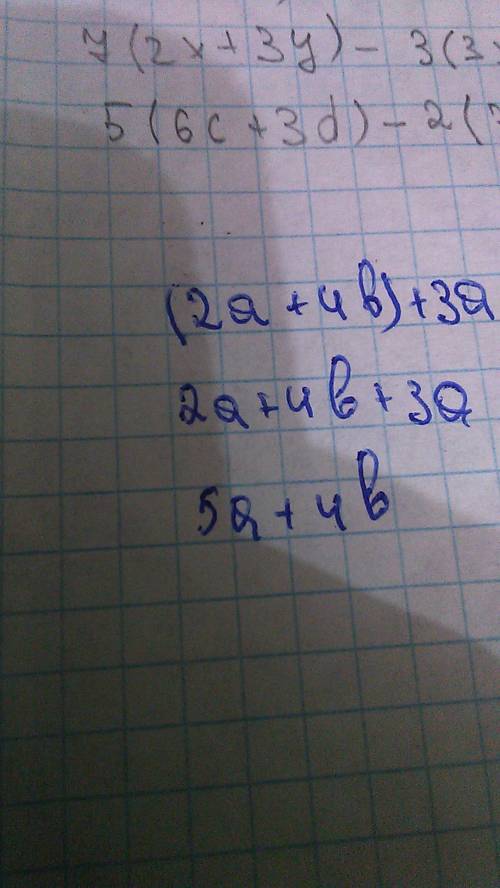 7(2x+3y)-3(3x
5(6c+3d)-2(
(2a+4b)+3a
2a+4b+3a
5a+4b